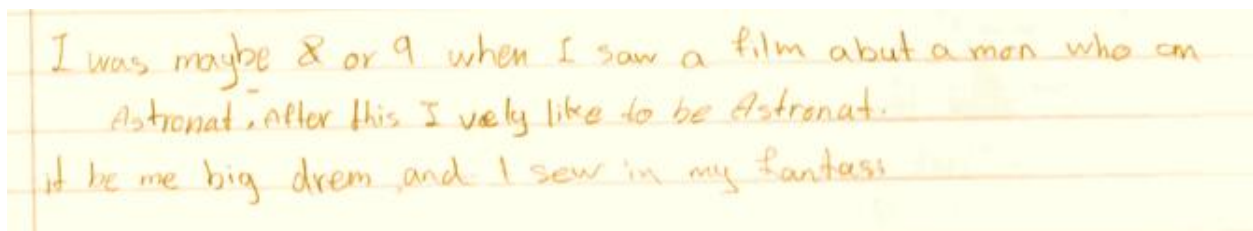 I was maybe 8 or 9 when I saw a film abut a man who am
Astronat. After this I vely like to be Astronat.
it be me big drem and I sew in my fantasi